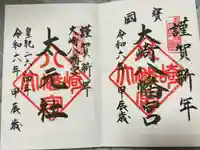 謹賀新年
國寳
大崎八幡宮
令和六年 甲辰歳
謹賀新年
大崎八幡宮
太元社
皇紀二六八四年
令和六年 甲辰歳